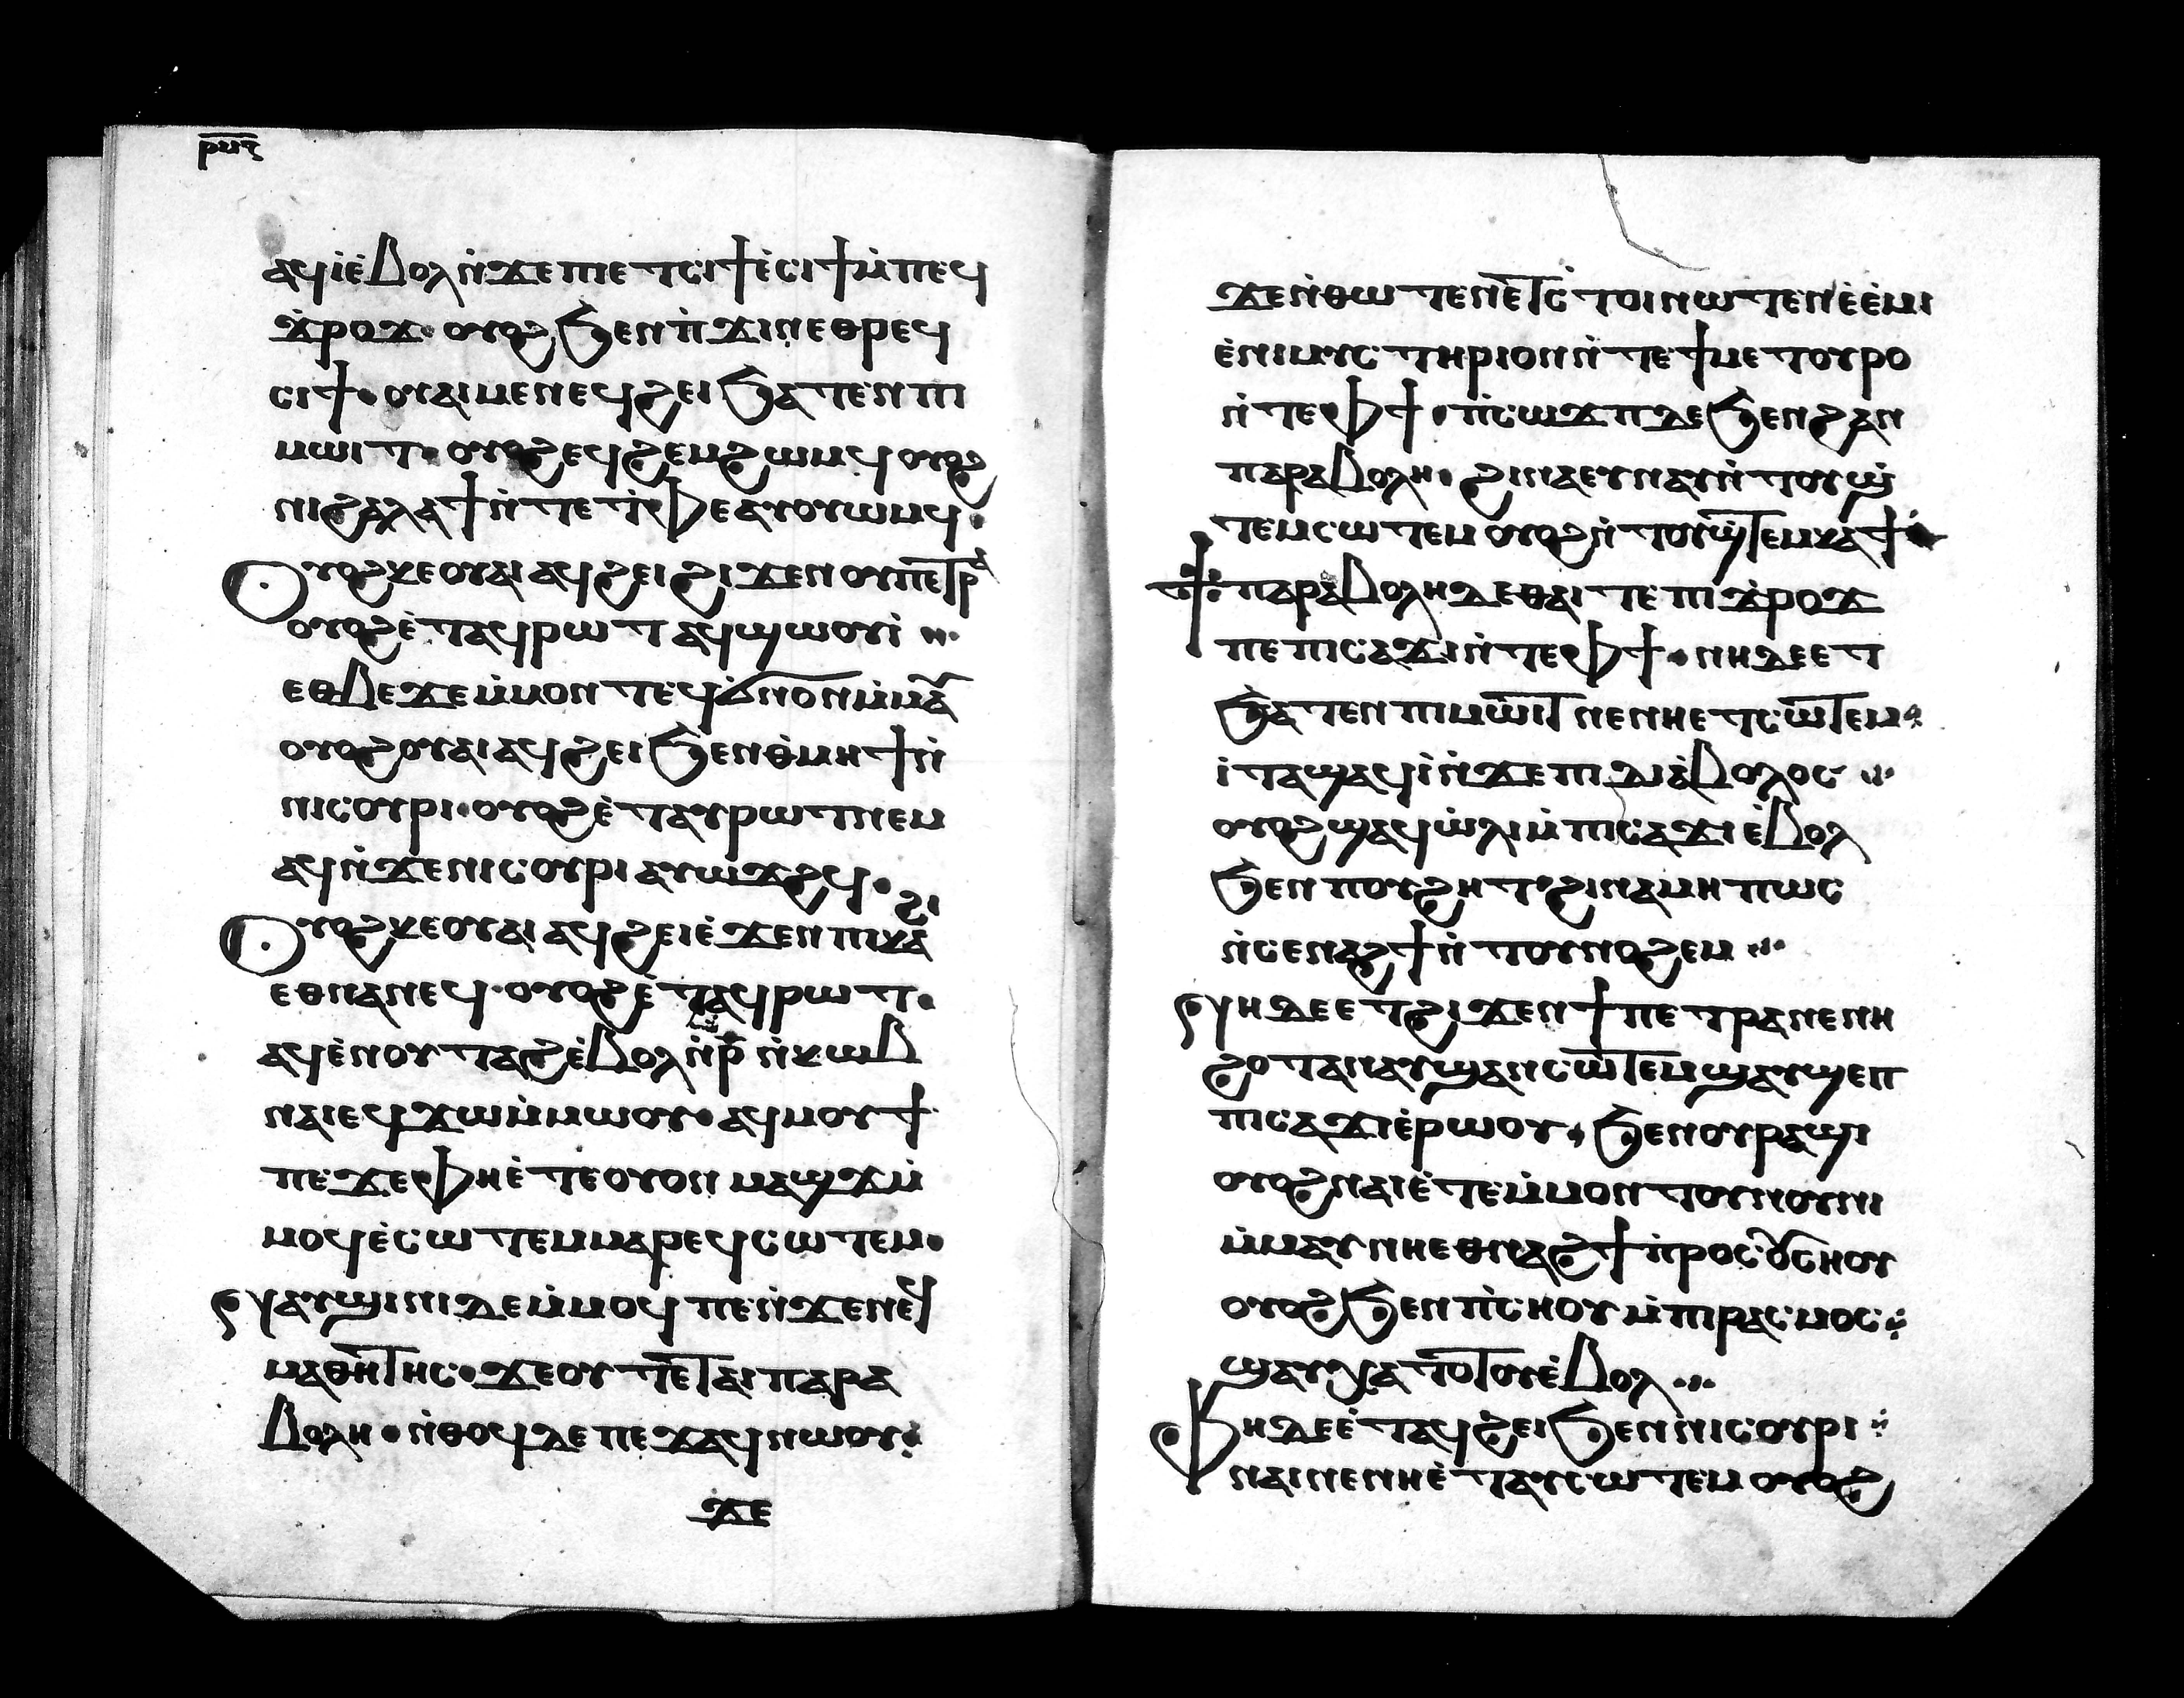 ⲣⲙⲋ
ⲁϥⲓ̀ⲉ̀ⲃⲟⲗⲛ̀ϫⲉⲡⲉⲧⲥⲓϯⲉ̀ⲥⲓϯⲙ̀ⲡⲉϥ
ϫ̀ⲣⲟϫ· ⲟⲩⲟϩϧⲉⲛⲡ̀ϫⲓⲛⲉⲑⲣⲉϥ
ⲥⲓϯ·ⲟⲩⲁⲓⲙⲉⲛⲉϥϩⲉⲓϧⲁⲧⲉⲛⲡⲓ
ⲙⲱⲓⲧ·ⲟⲩⲟϩⲉϥϩⲉⲙϩⲱⲙϥⲟⲩⲟϩ
ⲛⲓϩⲁⲗⲁϯⲛ̀ⲧⲉⲧ̀ⲫⲉⲁⲩⲟⲩⲱⲙϥ·
Ⲟⲩⲟϩⲕⲉⲟⲩⲁⲓⲁϥϩⲉⲓϩⲓϫⲉⲛⲟⲩⲡⲉⲧⲣⲁ
ⲟⲩⲟϩⲉ̀ⲧⲁϥⲣⲱⲧⲁϥϣⲱⲟⲩⲓ̀
ⲉⲑⲃⲉϫⲉⲙ̀ⲙⲟⲛⲧⲉϥⲛⲟⲛⲙ̀ⲙⲁ
ⲟⲩⲟϩⲟⲩⲁⲓⲁϥϩⲉⲓϧⲉⲛⲑ̀ⲙⲏϯⲛ̀
ⲛⲓⲥⲟⲩⲣⲓ·ⲟⲩⲟϩⲉ̀ⲧⲁⲩⲣⲱⲧⲛⲉⲙ
ⲁϥⲛ̀ϫⲉⲛⲓⲥⲟⲩⲣⲓⲁⲩⲱϫϩϥ·
Ⲟⲩⲟϩⲕⲉⲟⲩⲁⲓⲁϥϩⲉⲓⲉ̀ϫⲉⲛⲡⲓⲕⲁϩⲓ
ⲉⲑⲛⲁⲛⲉϥ·ⲟⲩⲟϩⲉ̀ⲧⲁϥⲣⲱⲧ·
ⲁϥⲉ̀ⲛⲟⲩⲧⲁϩⲉ̀ⲃⲟⲗⲛ̀ⲣ̅ⲛ̀ⲕⲱⲃ
ⲛⲁⲓⲉϥϫⲱⲙ̀ⲙⲱⲟⲩ·ⲁϥⲙⲟⲩϯ
ⲡⲉϫⲉⲫⲏⲉ̀ⲧⲉⲟⲩⲟⲛⲙⲁϣϫⲙ̀
ⲙⲟϥⲉ̀ⲥⲱⲧⲉⲙⲙⲁⲣⲉϥⲥⲱⲧⲉⲙ·
ⲁⲩϣⲓⲛⲓⲇⲉⲙ̀ⲙⲟϥⲡⲉⲛ̀ϫⲉⲛⲉϥ
ⲙⲁⲑⲏⲧⲏⲥ·ϫⲉⲟⲩⲧⲉⲧⲁⲓⲡⲁⲣⲁ
ⲃⲟⲗⲏ·ⲛ̀ⲑⲟϥⲇⲉⲡⲉϫⲁϥⲛⲱⲟⲩ
ϫⲉ
ϫⲉⲛ̀ⲑⲱⲧⲉⲛⲉⲧⲥ̀ⲧⲟⲓⲛⲱⲧⲉⲛⲉ̀ⲉ̀ⲙⲓ
ⲉ̀ⲛⲓⲙⲩⲥⲧⲏⲣⲓⲟⲛⲛ̀ⲧⲉϯⲙⲉⲧⲟⲩⲣⲟ
ⲛ̀ⲧⲉⲫϯ·ⲡ̀ⲥⲱϫⲡⲇⲉϧⲉⲛϩⲁⲛ
ⲡⲁⲣⲁⲃⲟⲗⲏ·ϩⲓⲛⲁⲉⲩⲛⲁⲩⲛ̀ⲧⲟⲩϣ̀
ⲧⲉⲙⲥⲱⲧⲉⲙⲟⲩⲟϩⲛ̀ⲧⲟⲩϣ̀ⲧⲉⲙⲕⲁϯ
ϯⲡⲁⲣⲁⲃⲟⲗⲏⲇⲉⲑⲁⲓⲧⲉⲡⲓϫ̀ⲣⲟϫ
ⲡⲉⲡⲓⲥⲁϫⲓⲛ̀ⲧⲉⲫϯ·ⲛⲏⲇⲉⲉⲧ
ϧⲁⲧⲉⲛⲡⲓⲙⲱⲓⲧⲛⲉⲛⲏⲉⲧⲥⲱⲧⲉⲙ
ⲓⲧⲁϣⲁϥⲓ̀ⲛ̀ϫⲉⲡⲓⲇⲓⲁ̀ⲃⲟⲗⲟⲥ
ⲟⲩⲟϩϣⲁϥⲱ̀ⲗⲓⲙ̀ⲡⲓⲥⲁϫⲓⲉ̀ⲃⲟⲗ
ϧⲉⲛⲡⲟⲩϩⲏⲧϩⲓⲛⲁⲙⲏⲡⲱⲥ
ⲛ̀ⲥⲉⲛⲁϩϯⲛ̀ⲧⲟⲩⲛⲟϩⲉⲙ
ⲛⲏⲇⲉⲉⲧϩⲓϫⲉⲛϯⲡⲉⲧⲣⲁⲛⲉⲛⲏ
ϩⲟⲧⲁⲛⲁⲩϣⲁⲛⲥⲱⲧⲉⲙϣⲁⲩϣⲉⲡ
ⲡⲓⲥⲁϫⲓⲉ̀ⲣⲱⲟⲩ·ϧⲉⲛⲟⲩⲣⲁϣⲓ
ⲟⲩⲟϩⲛⲁⲓⲉ̀ⲧⲉⲙ̀ⲙⲟⲛⲧⲟⲩⲛⲟⲩⲛⲓ
ⲙ̀ⲙⲁⲩⲛⲏⲉⲑⲛⲁϩϯⲡ̀ⲣⲟⲥⲟⲩⲥⲏⲟⲩ
ⲟⲩⲟϩϧⲉⲛⲡ̀ⲥⲏⲟⲩⲙ̀ⲡⲓⲣⲁⲥⲙⲟⲥ
ϣⲁⲩⲭⲁⲧⲟⲧⲟⲩⲉ̀ⲃⲟⲗ
Ⲫⲏⲇⲉⲉ̀ⲧⲁϥϩⲉⲓϧⲉⲛⲛⲓⲥⲟⲩⲣⲓ
ⲛⲁⲓⲛⲉⲛⲏⲉ̀ⲧⲁⲩⲥⲱⲧⲉⲙⲟⲩⲟϩ